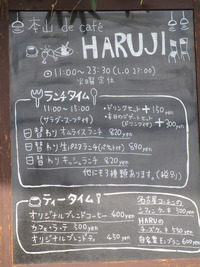 本山 de café
HARUJI
11:00〜23:30 (L.O 23:00)
火曜定休
ランチタイム
11:00 〜 15:00
(サラダ・スープ付)
・ドリンクセット +150yen
+300yen
日替わりオムライスランチ 820yen
日替わり生パスタランチ 890yen
日替わりキッシュランチ 820yen
他にも3種類あります。(税別)
ティータイム
オリジナルブレンドコーヒー 400yen
カフェ・ラ・テ 500yen
オリジナルブレンドティ 430yen
名古屋コーチンの
HARUの
チーズケーキ
自家製モンブラン 600yen